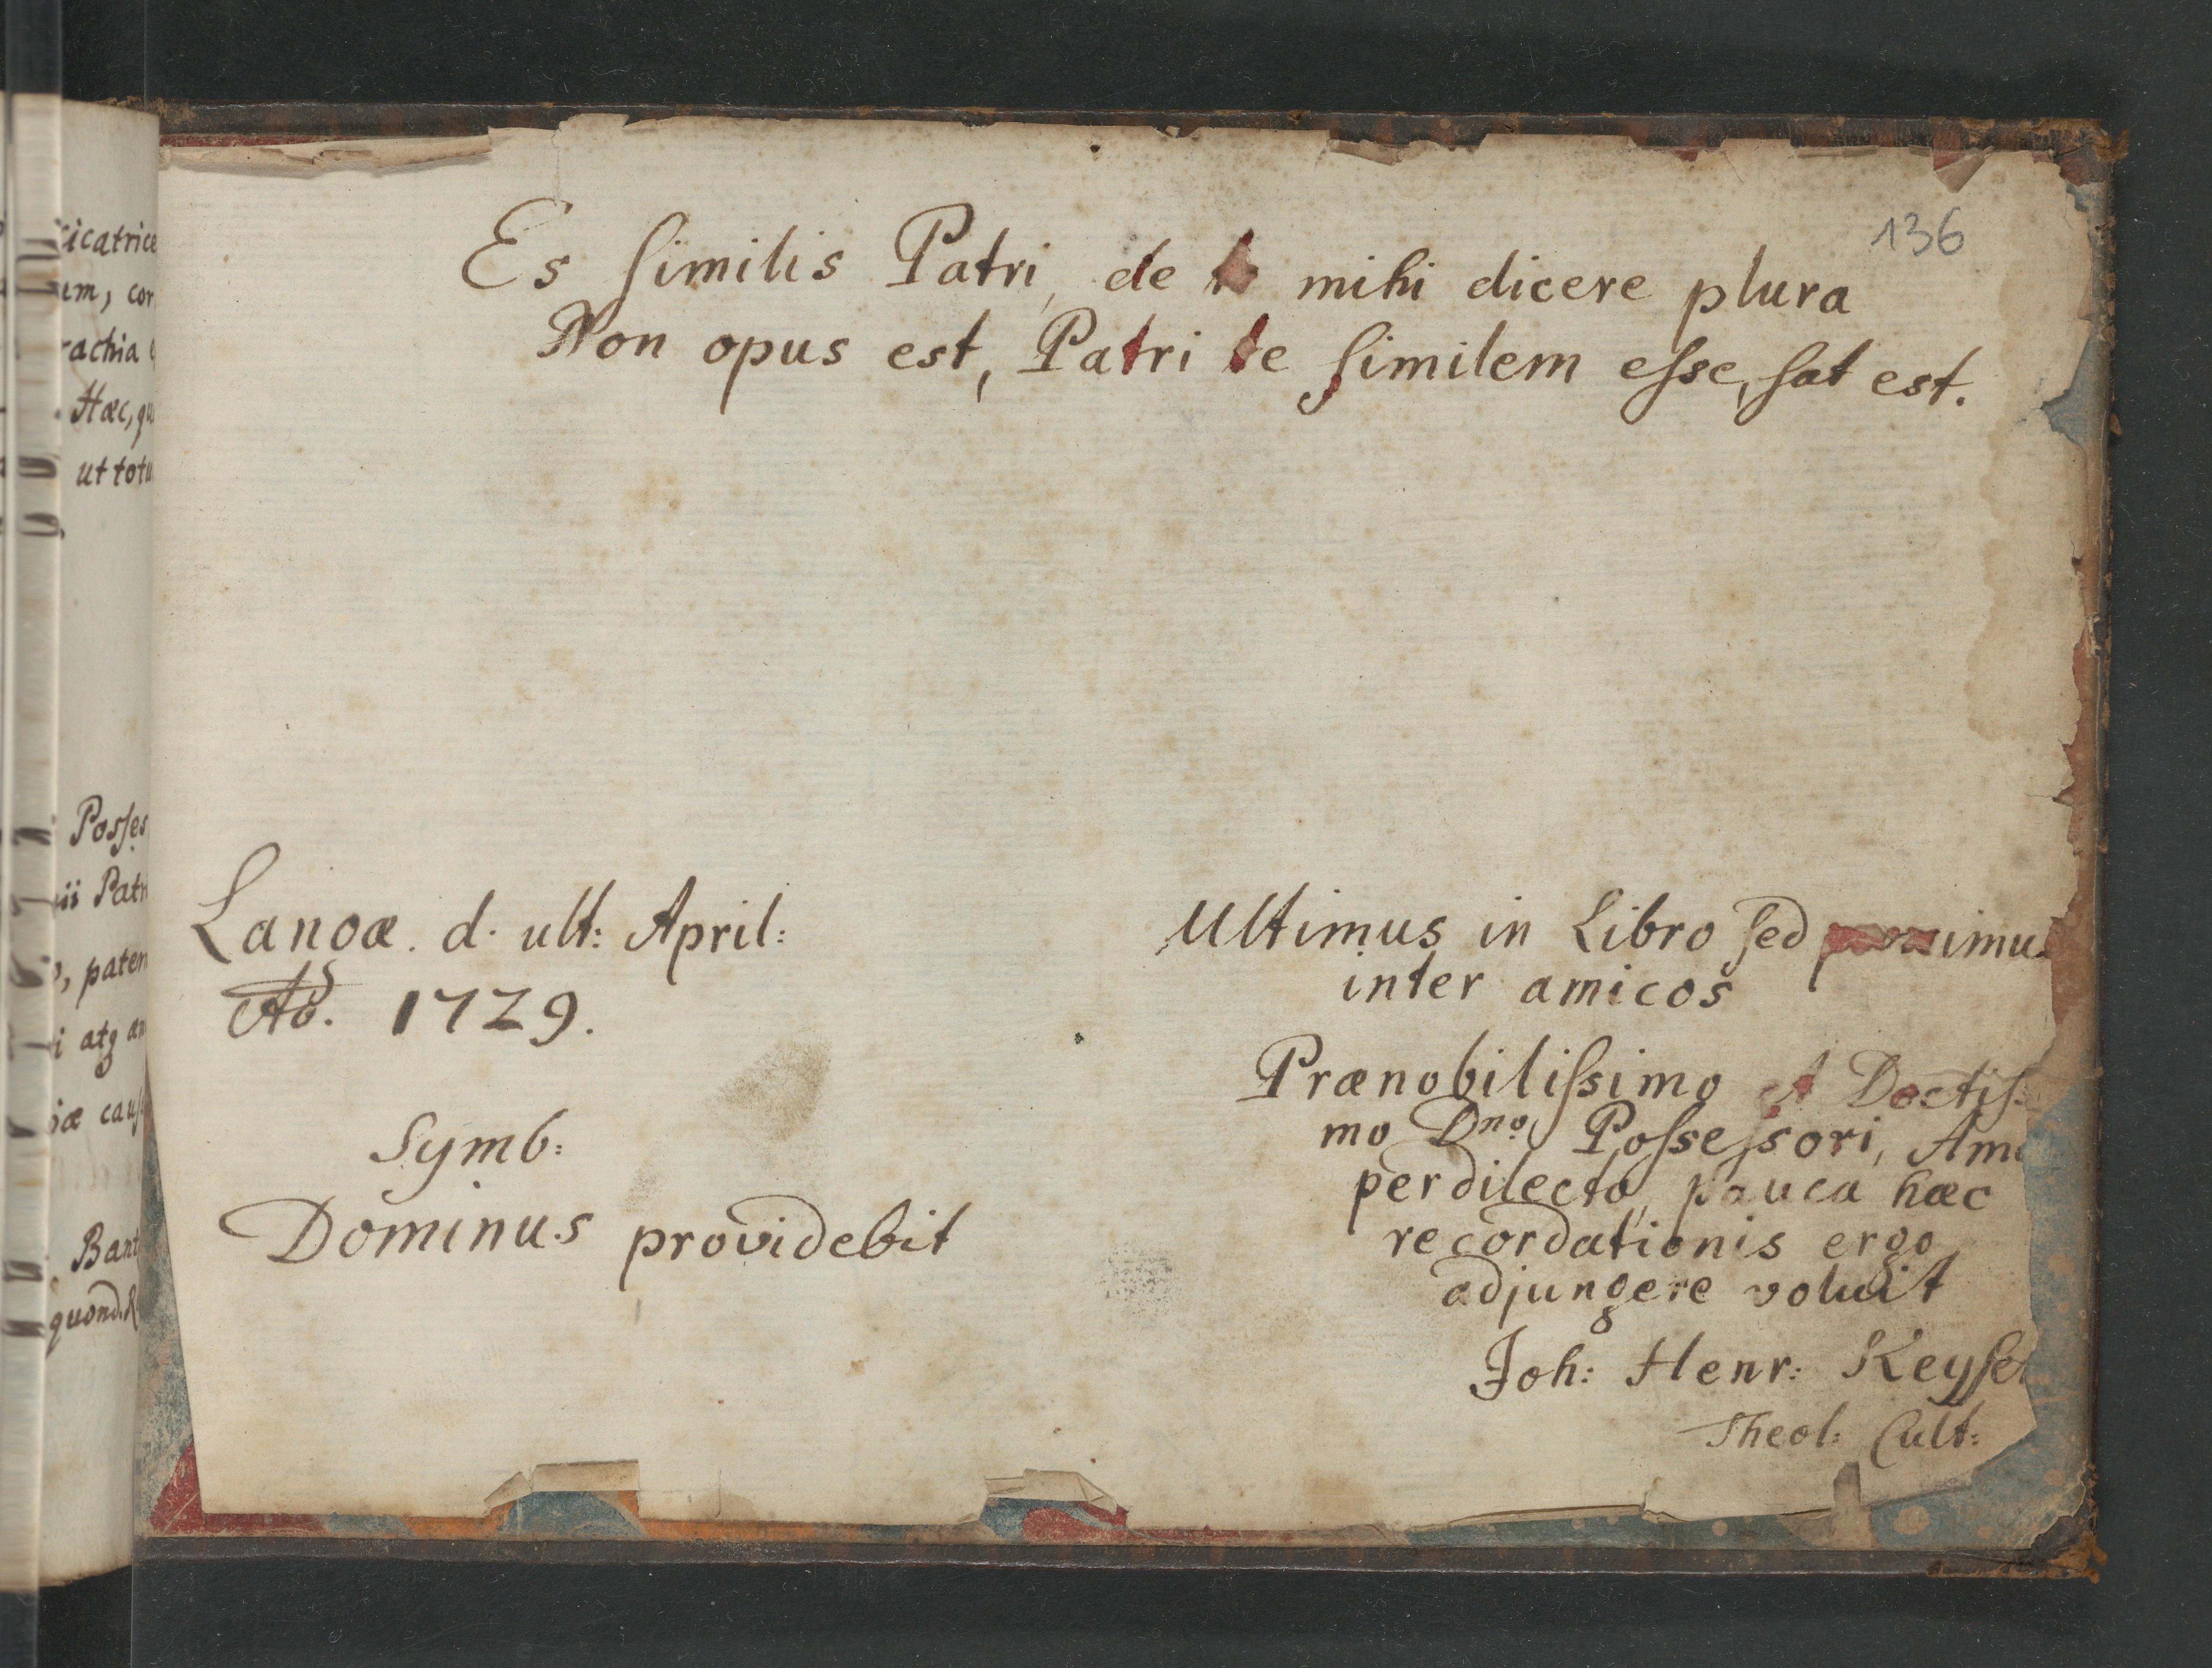 136
Es similis Patri, de mihi dicere plura
Non opus est, Patri te similem esse, sat est.
Lanoæ. d. ult: April:
Ao. 1729.
Symb:
Dominus providebit
Ultimus in Libro sed
inter amicos
Prænobilissimo & Doctiss
mo Dno Possessori, Am
perdilecto, pauca hæc
recordationis ergo
adjungere voluit
Joh: Henr: Keyser
Theol: Cult:
icatrice
um, cor
rachia
Hæc, qu
ut totu
Posses
ii Patr
, paten
i atq am
iæ caus
Bant
quond. R